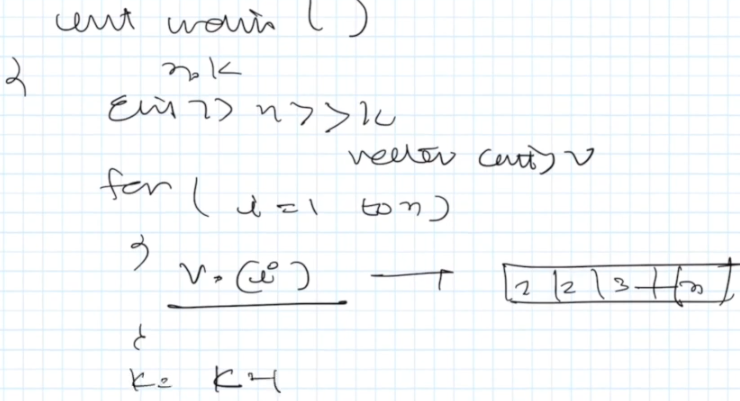 int main ( )
{
n, k
cin >> n >> k
vector <int> v
for ( i = 1 to n )
{
v.(i) → 1 2 3 n
}
k = k-1